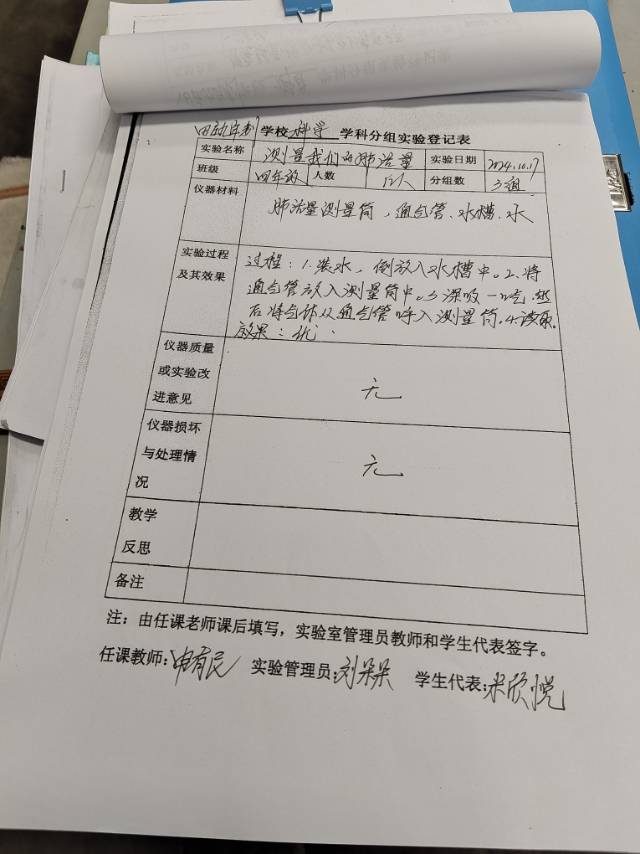 学校 科学 学科分组实验登记表
实验名称 测量我们的肺活量 实验日期 2024.10.17
班级 四年级 人数 12人 分组数 3组
仪器材料 肺活量测量筒，通气管、水槽、水
实验过程 过程：1.装水，倒放入水槽中。2.将
及其效果 通气管放入测量筒中。3深吸一口气，然
后将气体从通气管呼入测量筒。4.读取。
效果：优.
仪器质量
或实验改 无
进意见
仪器损坏
与处理情 无
况
教学
反思
备注
注：由任课老师课后填写，实验室管理员教师和学生代表签字。
任课教师：申有民 实验管理员：刘朵朵 学生代表：米欣悦